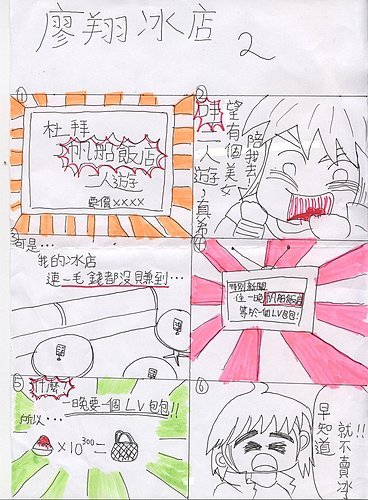 廖翔冰店 2
①
杜拜
帆船飯店
一人
要價xxxx
②
哇 一人 , 真希
望有個美女
陪我去
③
可是…
我的冰店
連一毛錢都沒賺到…
④
特別新聞
住一晚帆船飯店
等於一個LV包包!
⑤
什麼?
一晚要一個LV包包!!
所以…
×10³⁰⁰=
⑥
早知道
就不賣冰!!